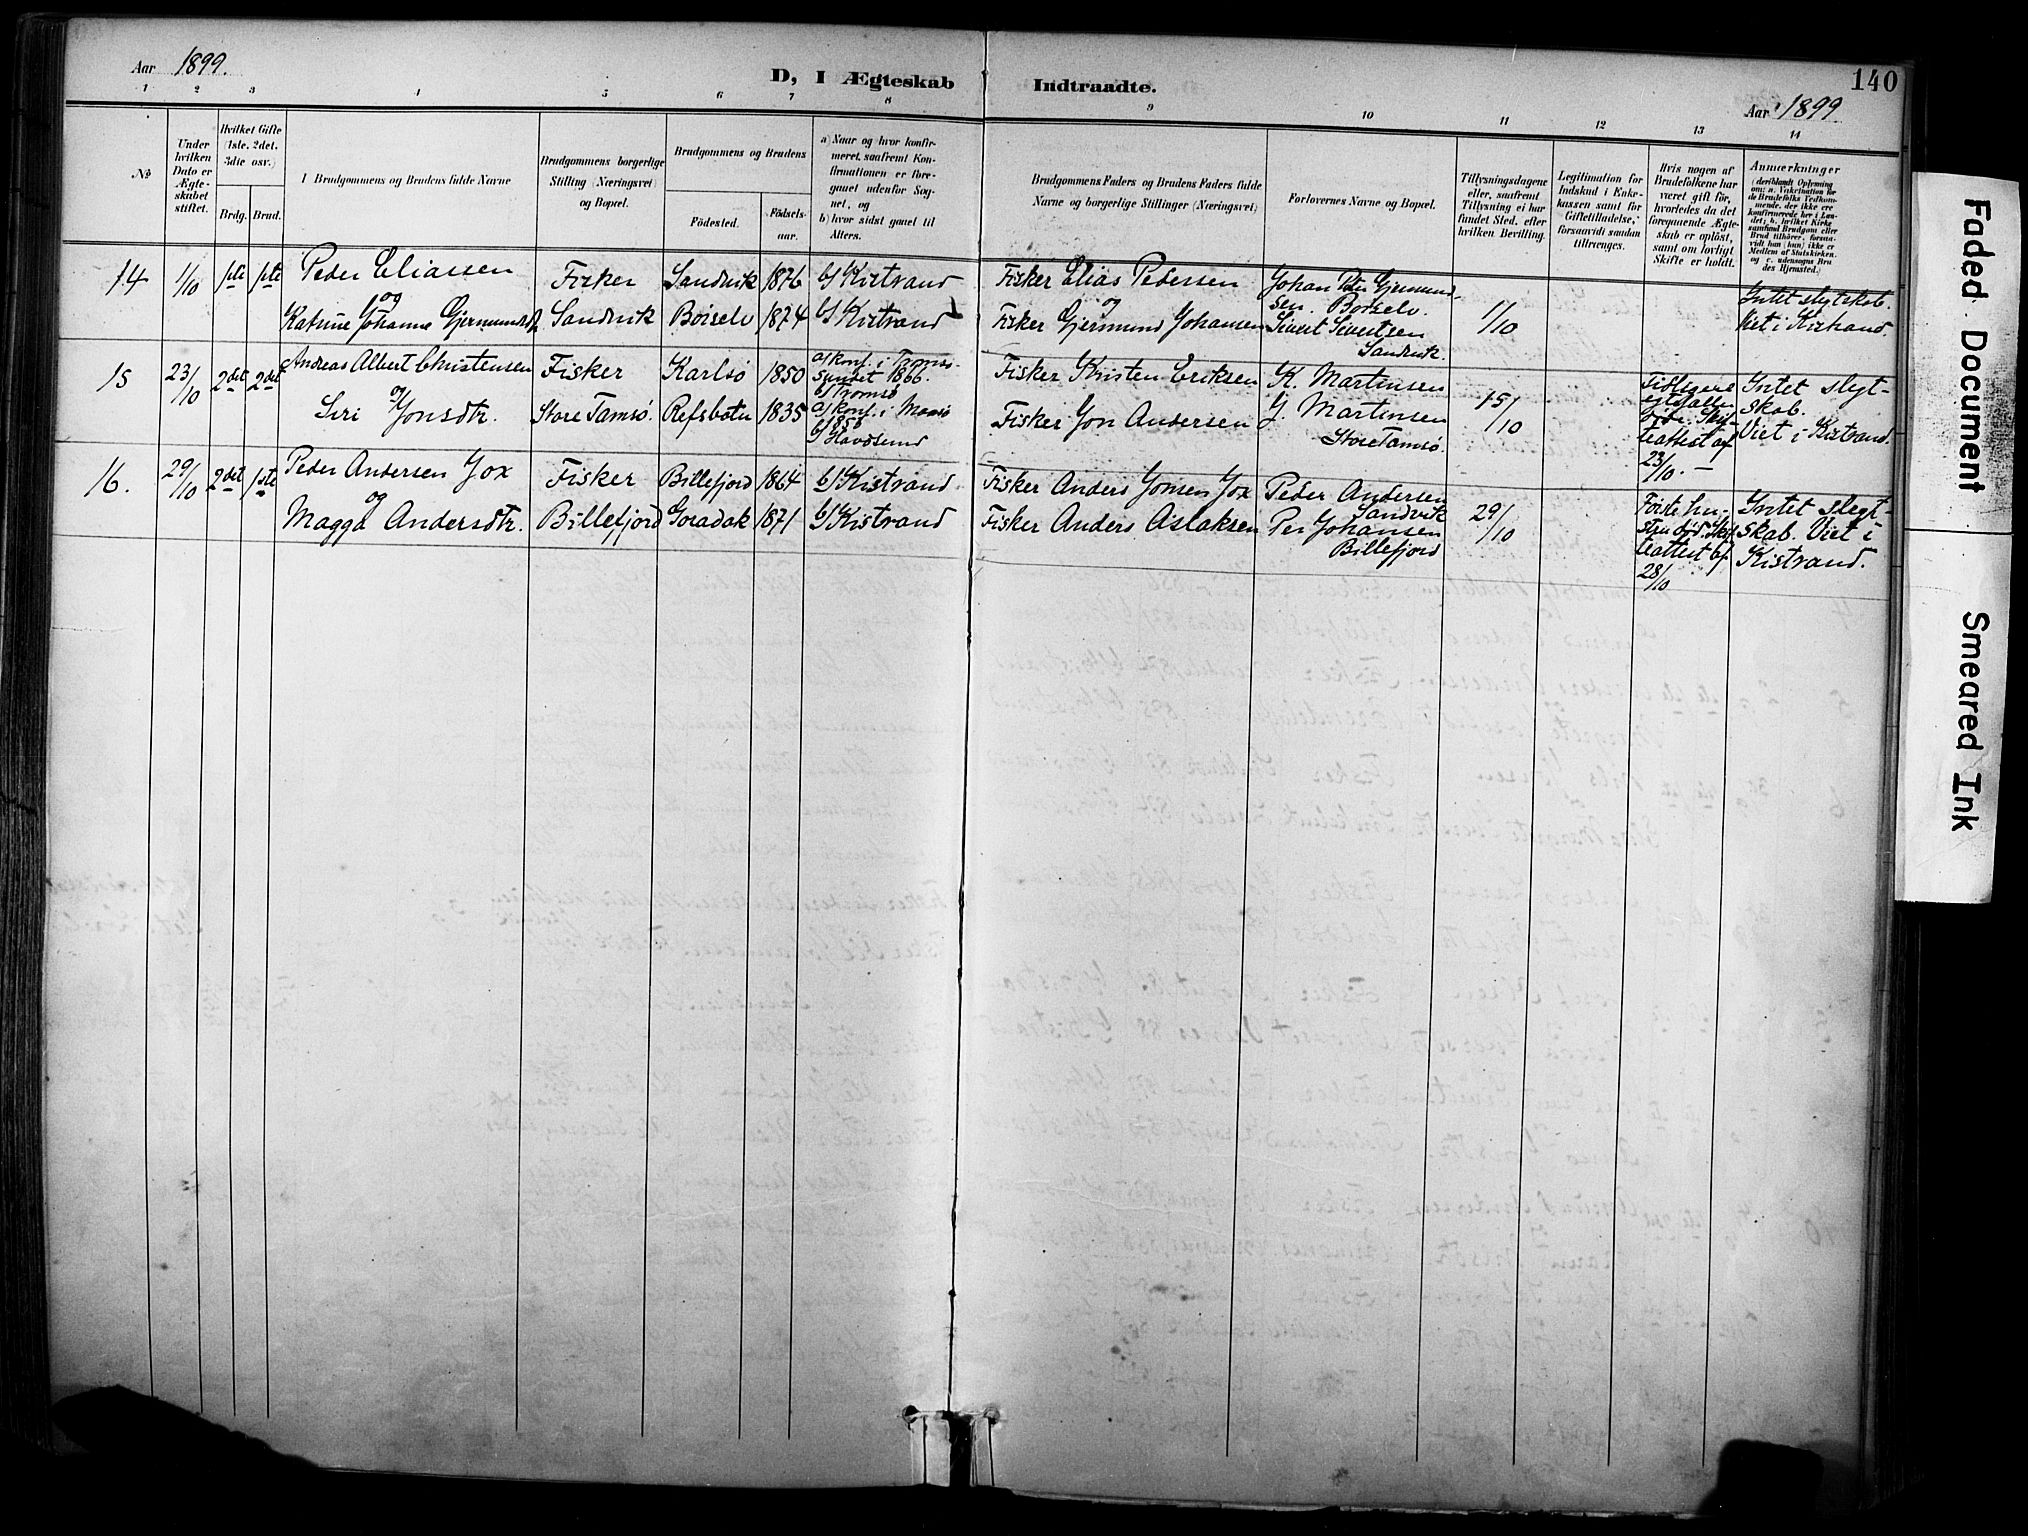 Aar 1899.
D, I Ægteskab Indtraadte.
140
Aar 1899.
1 2 3 4 5 6 7 8 9 10 11 12 13 14
No
Under hvilken Dato er Ægteskabet stiftet.
Hvilket Gifte (1ste, 2det, 3die osv.)
Brdg. Brud.
Brudgommens og Brudens fulde Navne
Brudgommens borgerlige Stilling (Næringsvei) og Bopæl.
Brudgommens og Brudens
Fødested.
Fødselsaar.
a) Naar og hvor konfirmeret, saafremt Konfirmationen er foregaaet udenfor Sognet, og
b) hvor sidst gaaet til Alters.
Brudgommens Faders og Brudens Faders fulde Navne og borgerlige Stillinger (Næringsvei)
Forlovernes Navne og Bopæl.
Tillysningsdagene eller, saafremt Tillysning ei har fundet Sted, efter hvilken Bevilling.
Legitimation for Indskud i Enkekassen samt for Giftetilladelse, forsaavidt saadan tiltrænges.
Hvis nogen af Brudefolkene har været gift før, hvorledes da det foregaaende Ægteskab er opløst, samt om lovligt Skifte er holdt.
Anmerkninger
14 1/10 1ste 1ste Peder Eliassen Fisker Sandvik 1876 b/ Kistrand Fisker Elias Pedersen Johan Peder Gjermundsen. Børselv.
og
Katrine Johanne Gjermundsdtr Sandvik Børselv 1874 b/ Kistrand Fisker Gjermund Johansen Sivert Sivertsen Sandvik. 1/10 Intet slegtskab. Viet i Kistrand.
15 23/10 2det 2det Andreas Albert Christensen Fisker Karlsø 1850 a/ konf. i Tromsøsundet 1866. b/ Tromsø Fisker Kristen Eriksen K. Martinsen
og
Siri Jonsdtr. Store Tamsø. Refsbotn 1835 a/ konf. i Maasø 1856 b/ Havøsund Fisker Jon Andersen J. Martinsen Store Tamsø. 15/10 Tidligere egtefæller døde. Skifteattest af 23/10. — Intet slegtskab. Viet i Kistrand.
16. 29/10 2det 1ste Peder Andersen Jox Fisker Billefjord 1864 b/ Kistrand. Fisker Anders Jonsen Jox Peder Andersen Sandvik
og
Magga Andersdtr. Billefjord Goradak 1871 b/ Kistrand Fisker Anders Aslaksen Per Johansen Billefjord 29/10 Første hustru død. Skifteattest af 28/10 Intet slegtskab. Viet i Kistrand.
Faded Document
Smeared Ink